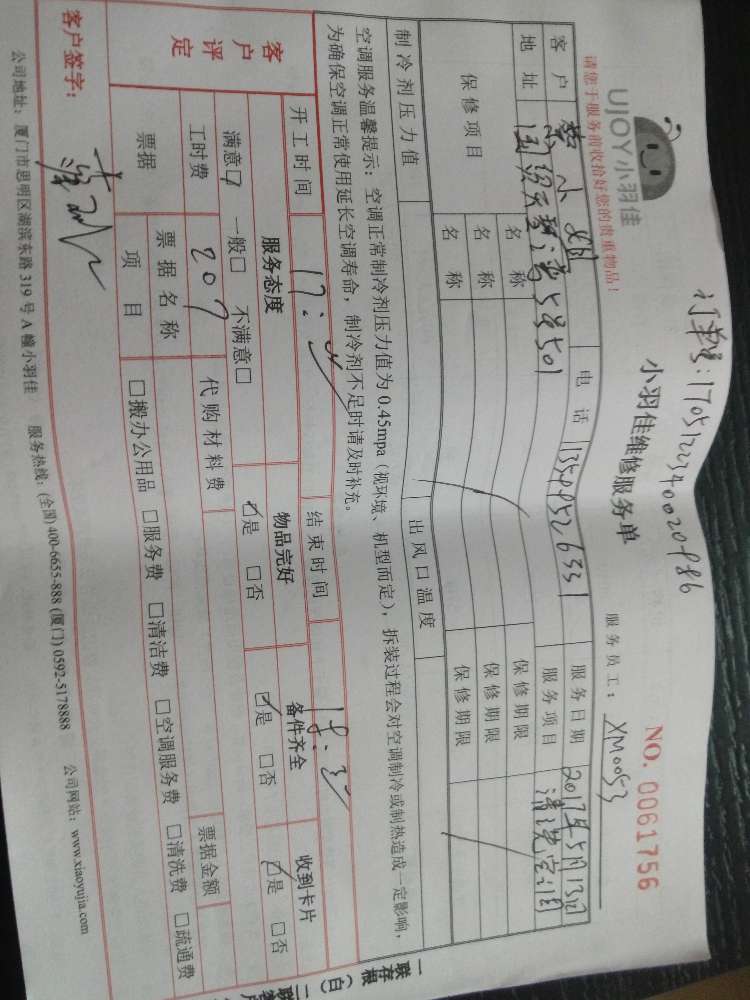 订单号:
UJOY小羽佳
小羽佳维修服务单
NO. 0061756
请您于服务前收拾好您的贵重物品!
服务员工: XM0053
客户 电话 服务日期 2017年5月13日
地址 服务项目 清洗空调
保修项目 名称 保修期限
名称 保修期限
名称 保修期限
制冷剂压力值 出风口温度
空调服务温馨提示:空调正常制冷剂压力值为0.45mpa(视环境、机型而定),拆装过程会对空调制冷或制热造成一定影响,
为确保空调正常使用延长空调寿命,制冷剂不足时请及时补充。
开工时间 结束时间
客户评定 服务态度 物品完好 备件齐全 收到卡片
满意☑ 一般□ 不满意□ ☑是 □否 ☑是 □否 ☑是 □否
工时费 207 代购材料费
票据 票据名称 票据金额
项目 □搬办公用品 □服务费 □清洁费 □空调服务费 □清洗费 □疏通费
客户签字:
公司地址:厦门市思明区湖滨东路319号A幢小羽佳 服务热线:(全国)400-6655-888 (厦门)0592-5178888 公司网站:www.xiaoyujia.com
一联存根(白)二联客